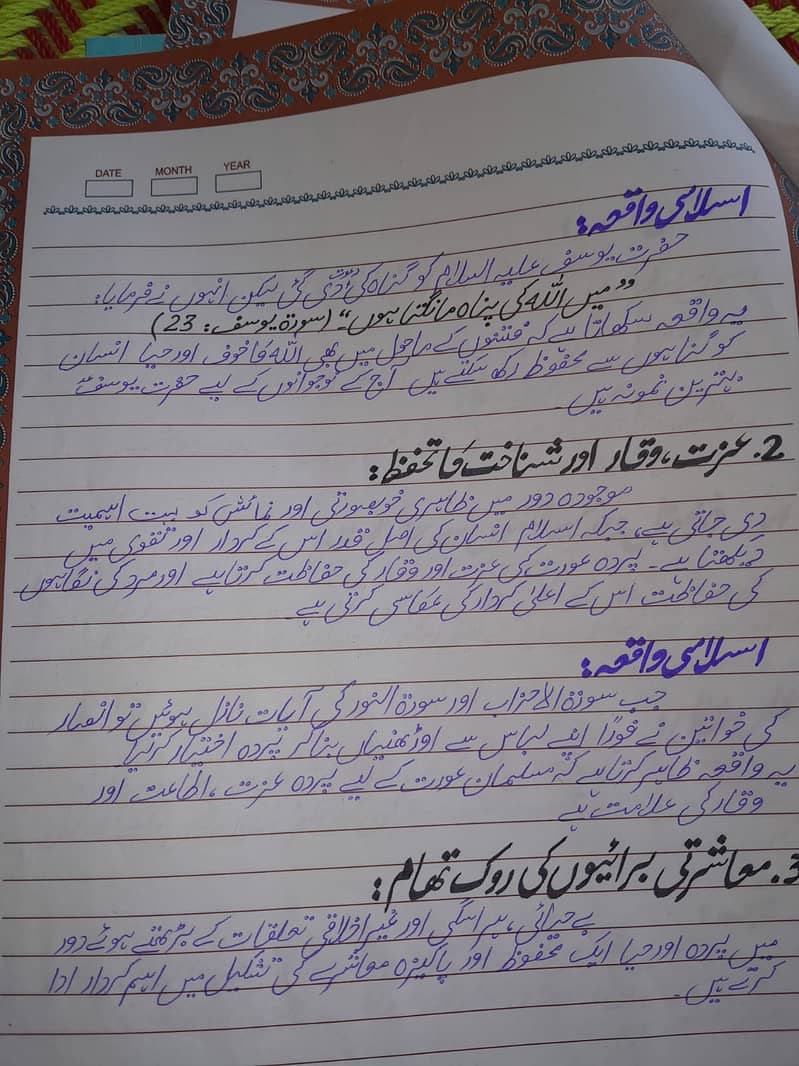 DATE MONTH YEAR
اسلامی واقعہ:
حضرت یوسف علیہ السلام کو گناہ کی دعوت دی گئی لیکن انہوں نے فرمایا:
”میں اللہ کی پناہ مانگتا ہوں۔“ (سورۃ یوسف: 23)
یہ واقعہ سکھاتا ہے کہ فتنوں کے ماحول میں بھی اللہ کا خوف اور حیا انسان
کو گناہوں سے محفوظ رکھ سکتے ہیں آج کے نوجوانوں کے لیے حضرت یوسفؑ
بہترین نمونہ ہیں۔
2. عزت، وقار اور شناخت کا تحفظ:
موجودہ دور میں ظاہری خوبصورتی اور نمائش کو بہت اہمیت
دی جاتی ہے، جبکہ اسلام انسان کی اصل قدر اس کے کردار اور تقوی میں
دیکھتا ہے۔ پردہ عورت کی عزت اور وقار کی حفاظت کرتا ہے اور مرد کی نگاہوں
کی حفاظت اس کے اعلیٰ کردار کی عکاسی کرتی ہے۔
اسلامی واقعہ:
جب سورۃ الاحزاب اور سورۃ النور کی آیات نازل ہوئیں تو انصار
کی خواتین نے فوراً اپنے لباس سے اوڑھنیاں بنا کر پردہ اختیار کر لیا
یہ واقعہ ظاہر کرتا ہے کہ مسلمان عورت کے لیے پردہ عزت، اطاعت اور
وقار کی علامت ہے
3. معاشرتی برائیوں کی روک تھام:
بے حیائی، ہراسگی اور غیر اخلاقی تعلقات کے بڑھتے ہوئے دور
میں پردہ اور حیا ایک محفوظ اور پاکیزہ معاشرے کی تشکیل میں اہم کردار ادا
کرتے ہیں۔